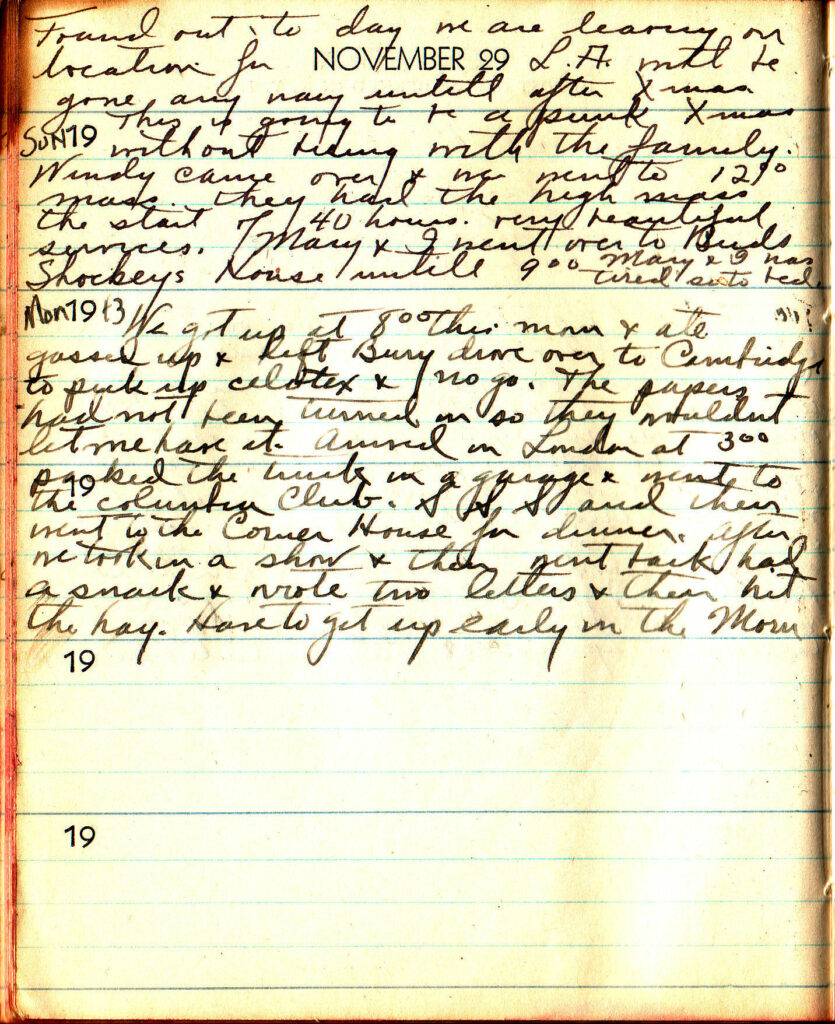 Found out to day we are leaving on
location for NOVEMBER 29 L.A. will be
gone any way untill after Xmas
This is going to be a punk Xmas
SUN 19 without being with the family.
Windy came over & we went to 12 00
mass. they had the high mass
the start of 40 hours. very beautiful
services. Mary & I went over to Buds
Shockeys House untill 9 00 Mary & I was
tired so to bed
Mon 19 43 We got up at 8 00 this morn & ate
gassed up & left Bury drove over to Cambridge
to pick up celotex & no go. The papers
had not been turned in so they wouldnt
let me have it. Arrived in London at 3 00
parked the truck in a garage & went to
19 the columbia Club. S S S and then
went to the Corner House for dinner. after
we took in a show & then went back had
a snack & wrote two letters & then hit
the hay. Have to get up early in the Morn
19
19